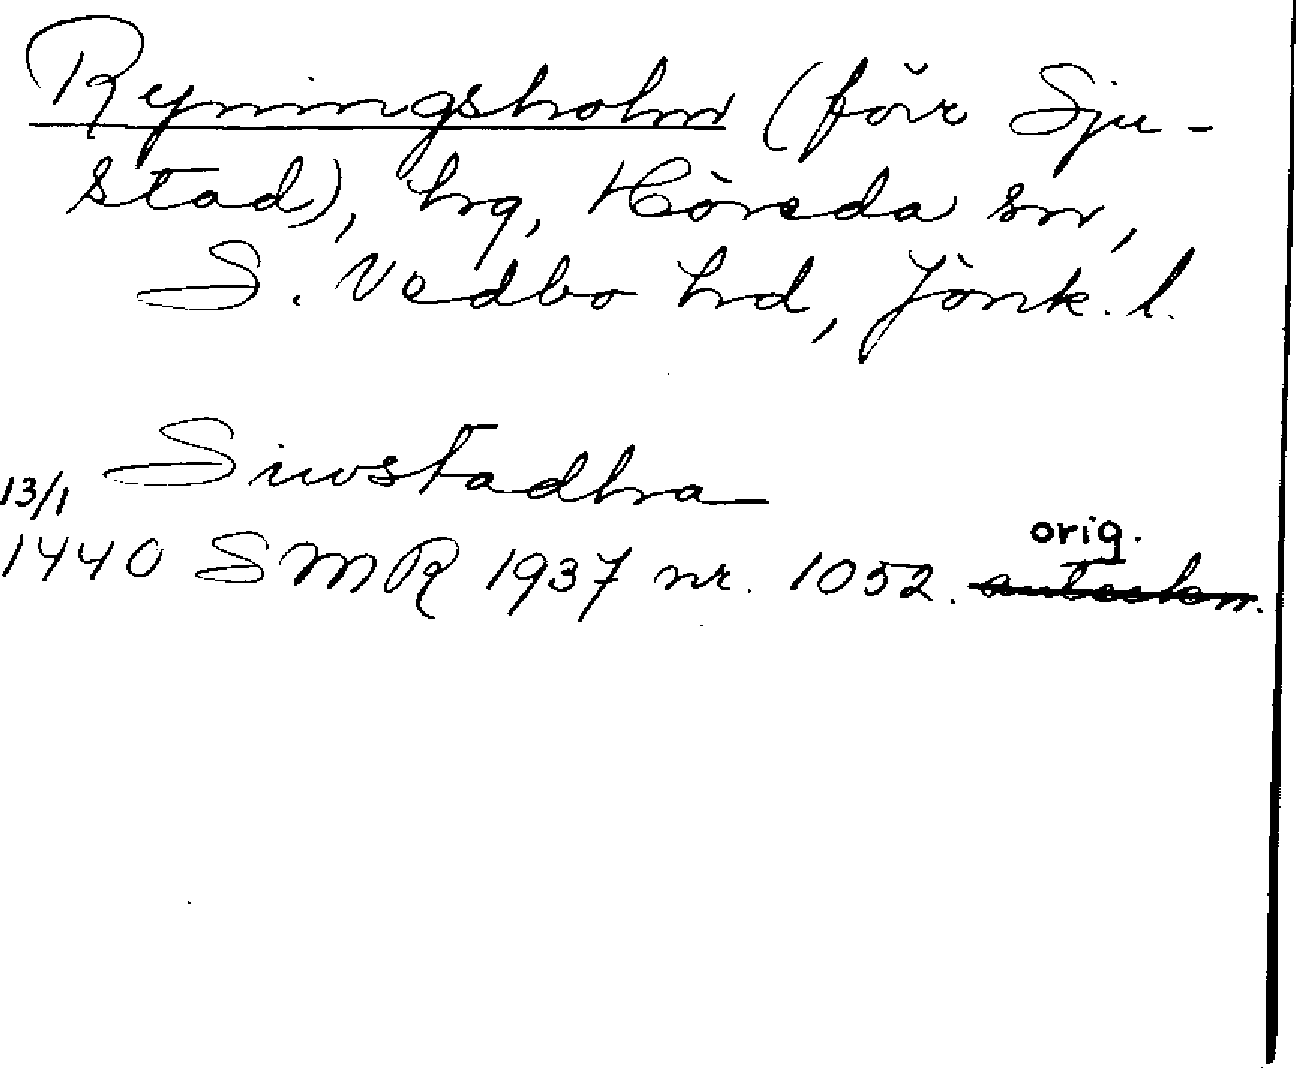 Ryningsholm (förr Sju-
stad), hrg, Höreda sn,
S. Vedbo hd, Jönk. l.
Siwstadha
13/1
orig.
1440 SMR 1937 nr. 1052. anteckn.